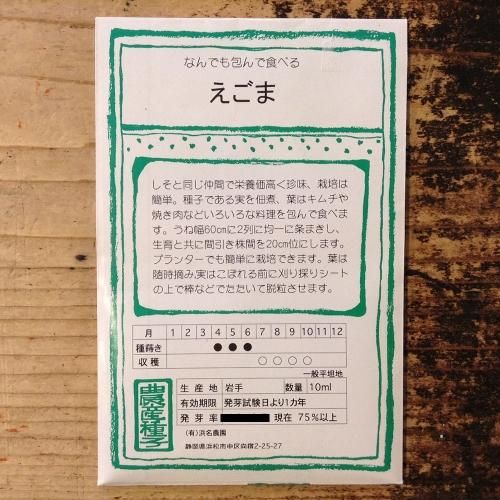 なんでも包んで食べる
えごま
しそと同じ仲間で栄養価高く珍味、栽培は
簡単。種子である実を佃煮、葉はキムチや
焼き肉などいろいろな料理を包んで食べま
す。うね幅60cmに2列に均一に条まきし、
生育と共に間引き株間を20cm位にします。
プランターでも簡単に栽培できます。葉は
随時摘み,実はこぼれる前に刈り採りシート
の上で棒などでたたいて脱粒させます。
月 1 2 3 4 5 6 7 8 9 10 11 12
種蒔き ●●●
収穫 ○○○○
一般平坦地
農産種子
生産地 岩手 数量 10ml
有効期限 発芽試験日より1カ年
発芽率 現在 75%以上
(有)浜名農園
静岡県浜松市中区向宿2-25-27